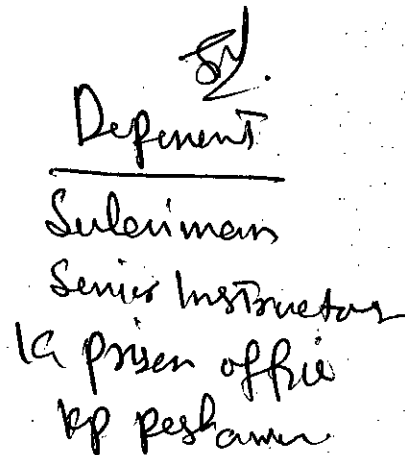 Deponent
Suleiman
Senior Instructor
IG prison office
KP Peshawar